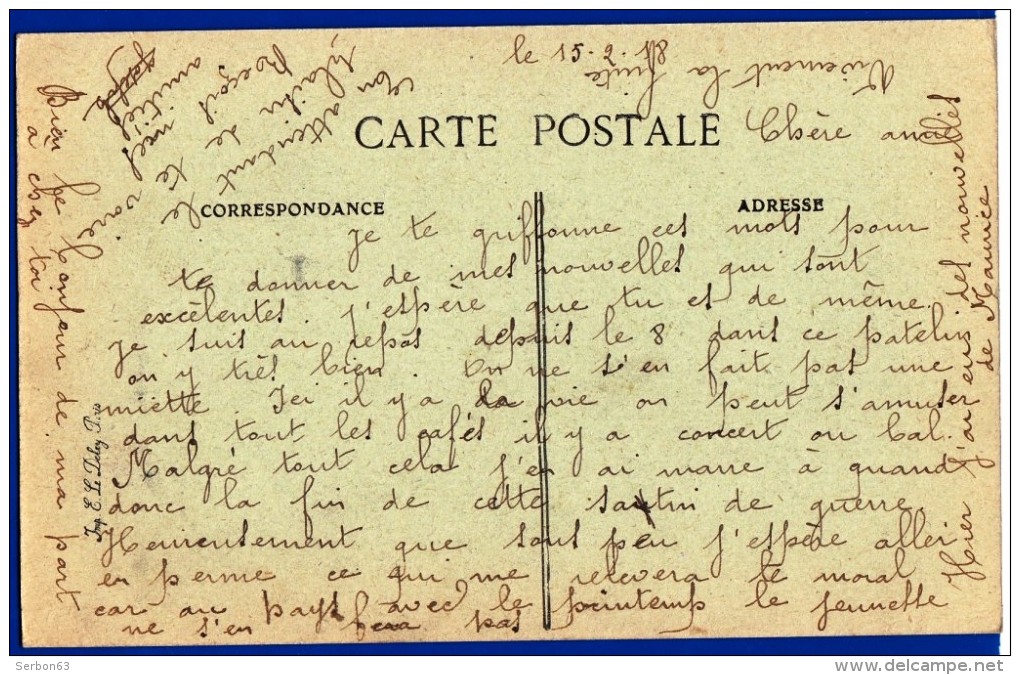 le 15-2-18
Vivement la fuite
CARTE POSTALE
Chère amie
CORRESPONDANCE
ADRESSE
Je te griffonne ces mots pour
te donner de mes nouvelles qui sont
excèlentes. j'espère que tu es de même.
Je suis au repos depuis le 8 dans ce patelin
on y très bien. On ne s'en fait pas une
miette. Ici il y a la vie on peut s'amuser
dans tout les cafés il y a concert ou bal.
Malgré tout cela j'en ai marre à quand
donc la fin de cette de guerre.
Heureusement que sous peu j'espère aller
en perme ce qui me relevera le moral
car au pays avec le printemp le jeunette
ne s'en fera pas
Hier j'ai eus des nouvelles
de Maurice
En attendant le
plaisir de te voir
Reçoit mes
amitiés
Bien le bonjour de ma part
a chez toi
Imp. E. Le Deley Paris
Serbon63
delcampe.net